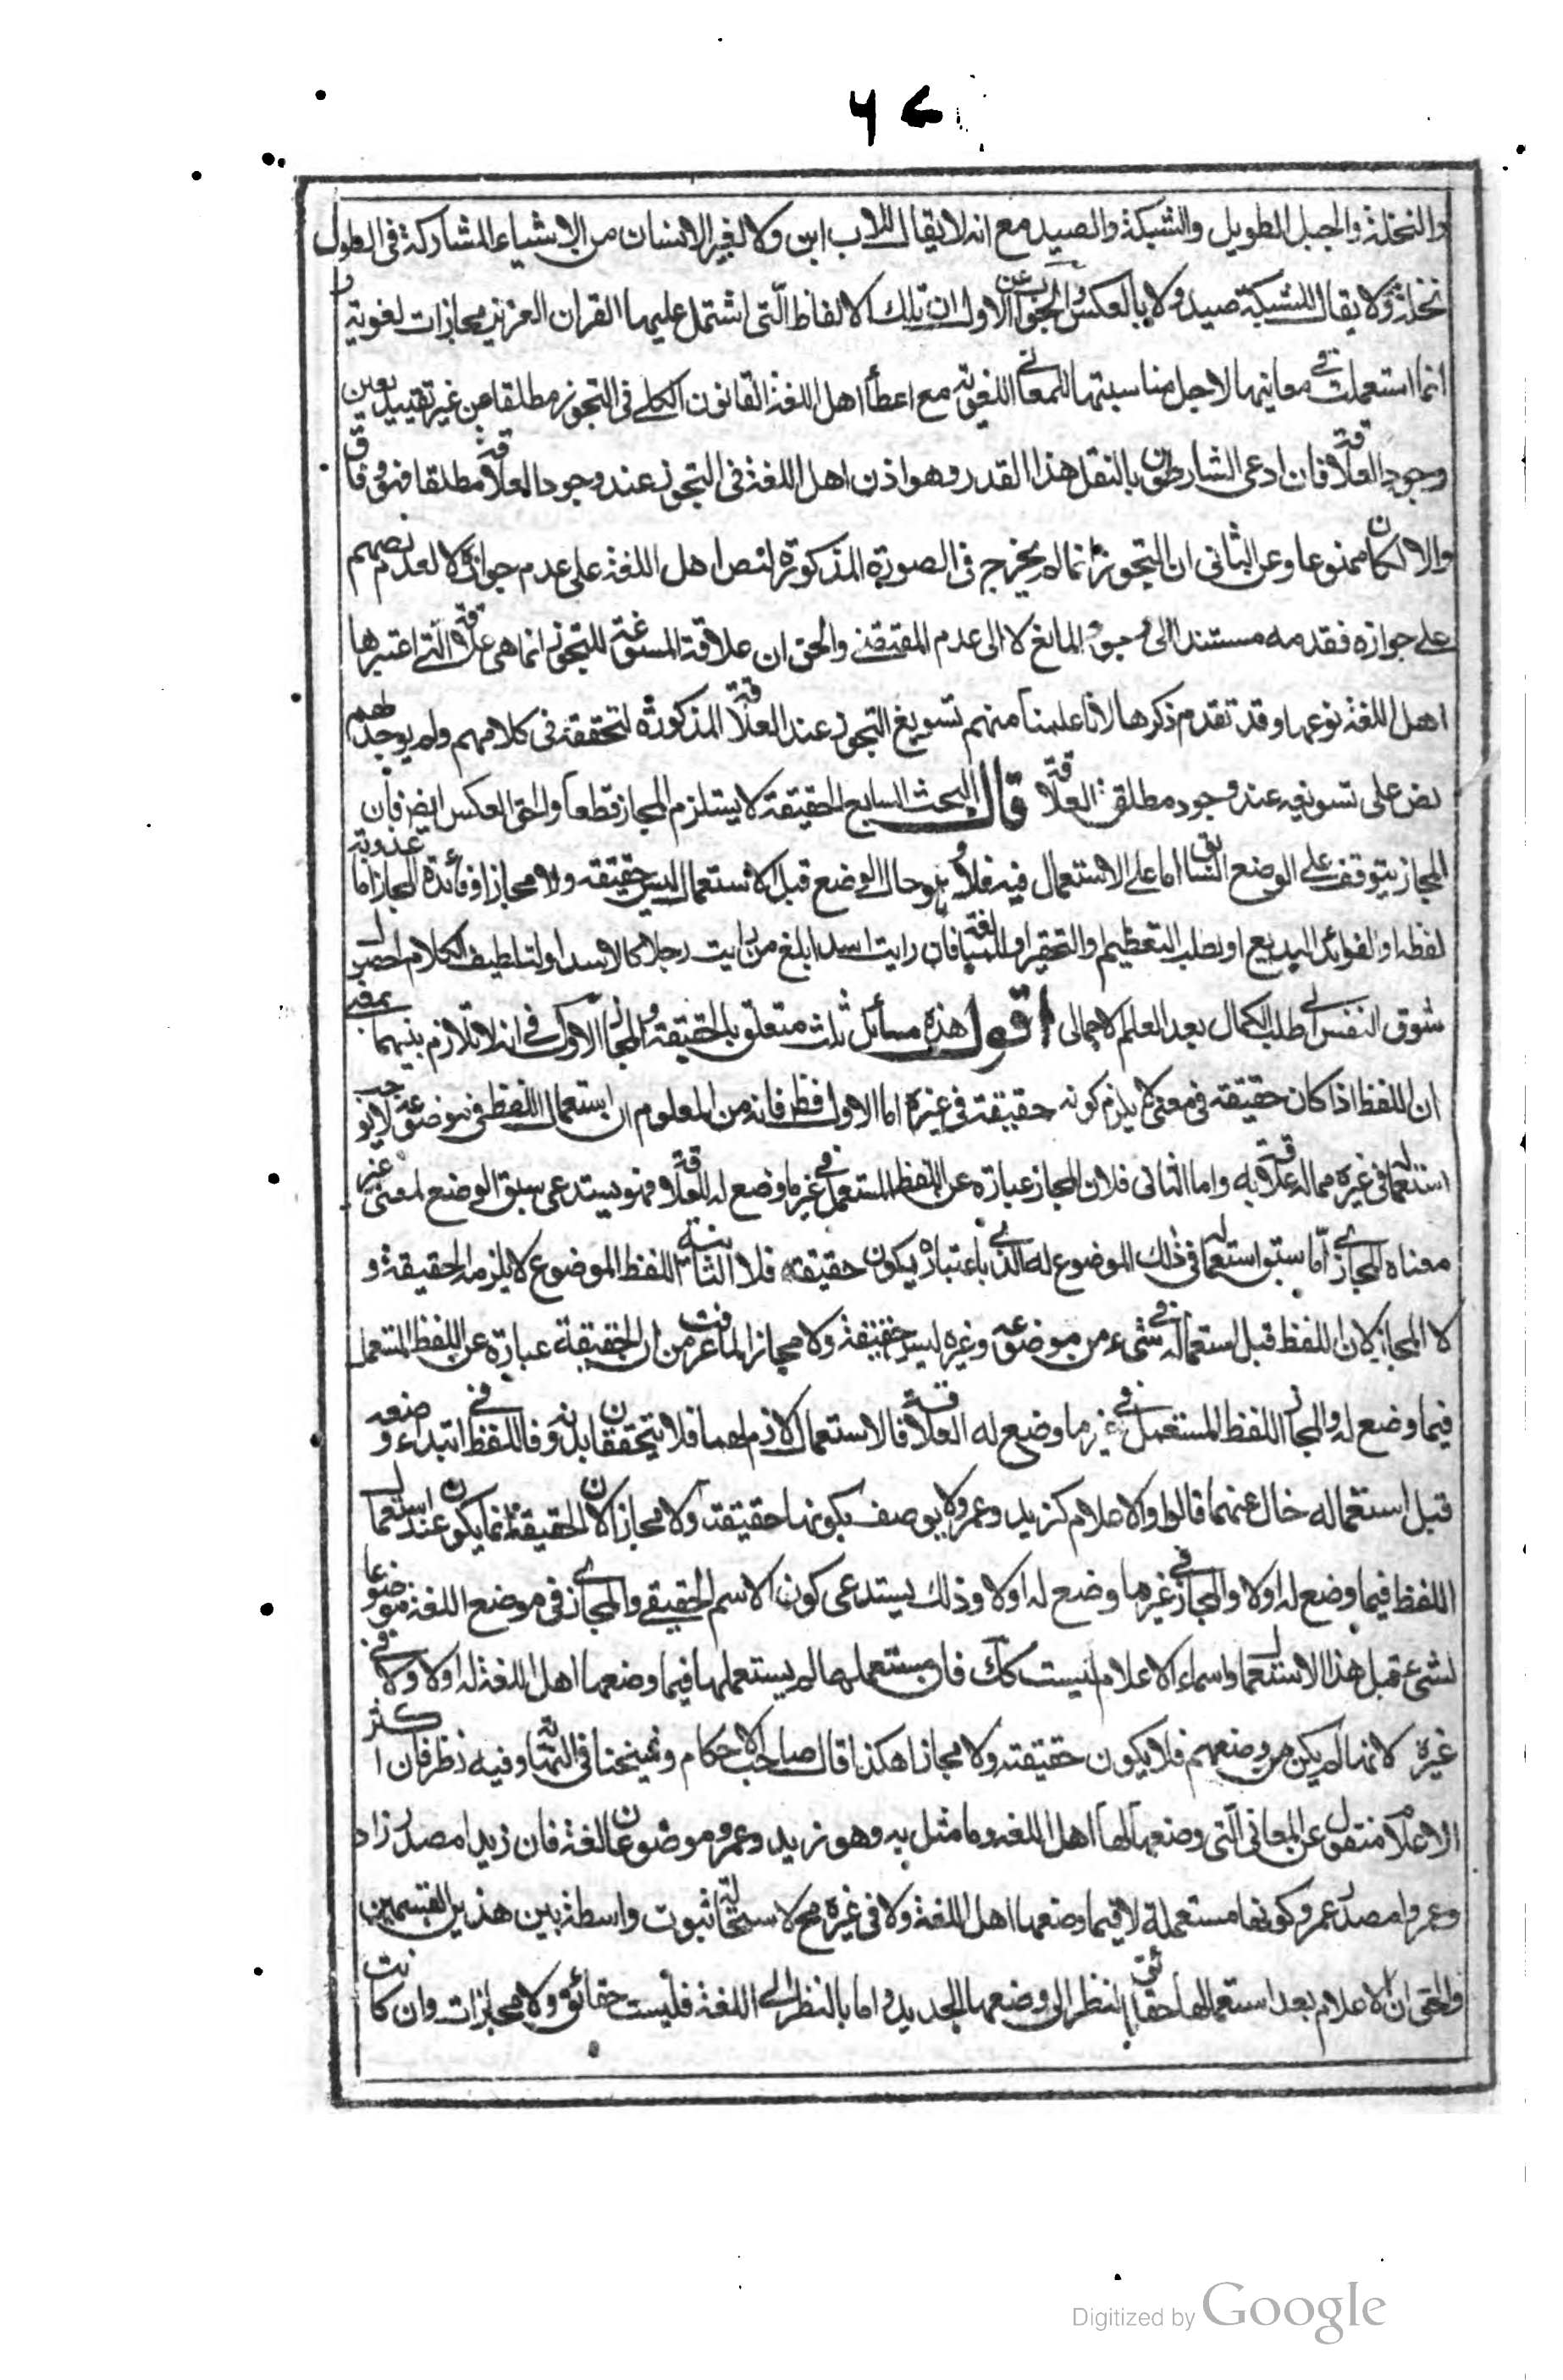 والنخلة والجبل الطويل والشبكة والصيد مع انه لا يقال للاب ابن ولا لغير الانسان من الاشياء المشاركة فى الطول
نخلة ولا يقال للشبكة صيد ولا بالعكس والجواب عن الاول ان تلك الالفاظ التى اشتمل عليها القران العزيز مجازات لغوية و
انما استعملت فى معانيها لاجل مناسبتها للمعانى اللغوية مع اعطأ اهل اللغة القانون الكلى فى التجوز مطلقا من غير تقييد بعين
وجود العلاقة فان ادعى الشارطون بالنقل هذا القدر وهو اذن اهل اللغة فى التجوز عند وجود العلاقة مطلقا فهو وفاق
والا لكان ممنوعا وعن الثانى ان التجوز انما لم يخرج فى الصورة المذكورة لنص اهل اللغة على عدم جوازه لا لعدم نصهم
على جوازه فقدمه مستندا الى وجود المانع لا الى عدم المقتضى والحق ان علاقة المسوغة للتجوز انما هى علاقة التى اعتبرها
اهل اللغة نوعها وقد تقدم ذكرها لانا علمنا منهم تسويغ التجوز عند العلاقة المذكورة لتحققه فى كلامهم ولم يوجد لهم
نص على تسويغه عند وجود مطلق العلاقة قال البحث السابع الحقيقة لا يستلزم المجاز قطعا والحق العكس ايض فان
المجاز يتوقف على الوضع السابق اما على الاستعمال فيه فلا وهو حال الوضع قبل الاستعمال ليس حقيقة ولا مجازا وفائدة المجاز اما عذوبة
لفظه او لفوائد البديع او لطلب التعظيم والتحقير او للمبالغة فان رايت اسدا ابلغ من رايت رجلا كالاسد او لتلطيف الكلام
شوق النفس الى طلب الكمال بعد العلم الاجمالى اقول هذه مسائل ثلث متعلق بالحقيقة والمجاز الاولى فى انه لا تلازم بينهما بمعنى
ان اللفظ اذا كان حقيقة فى معنى لا يلزم كونه حقيقة فى غيره اما الاول فظ فانه من المعلوم ان استعمال اللفظ فى موضوعه لا يوجب
استعماله فى غيره مما له علاقة به واما الثانى فلان المجاز عبارة عن اللفظ المستعمل فى غير ما وضع له للعلاقة فهو يستدعى سبق الوضع لمعنى غير
معناه المجازى اما سبق استعماله فى ذلك الموضوع له الذى باعتباره يكون حقيقة فلا الثانية اللفظ الموضوع لا يلزمه الحقيقة و
لا المجاز لان اللفظ قبل استعماله فى شىء من موضوعه وغيره ليس حقيقة ولا مجازا لما عرفت من ان الحقيقة عبارة عن اللفظ المستعمل
فيما وضع له والمجاز اللفظ المستعمل فى غير ما وضع له العلاقة فالاستعمال لازم لهما فلا يتحققان بدونه فاللفظ فى ابتداء وضعه و
قبل استعماله خال عنهما قالوا والاعلام كزيد وعمرو لا يوصف بكونها حقيقة ولا مجازا لان الحقيقة انما يكون عند استعمال
اللفظ فيما وضع له اولا والمجاز فى غير ما وضع له اولا وذلك يستدعى كون الاسم الحقيقى والمجازى فى موضع اللغة موضوعا
لشىء قبل هذا الاستعمال واسماء الاعلام ليست كك فان مستعملها لم يستعملها فيما وضعها اهل اللغة له اولا ولا فى
غيره لانها لم يكن من وضعهم فلا يكون حقيقة ولا مجازا هكذا قال صاحب الاحكام وشيخنا فى النهاية وفيه نظر فان اكثر
الاعلام منقول عن المعانى التى وضعها لها اهل اللغة وما مثل به وهو زيد وعمرو موضوعان لغة فان زيدا مصدر زاد
وعمروا مصدر عمر وكونها مستعملة لا فيما وضعها اهل اللغة ولا فى غيره مح لاستحالة ثبوت واسطة بين هذين القسمين
والحق ان الاعلام بعد استعمالها حقائق بالنظر الى وضعها الجديد واما بالنظر الى اللغة فليست حقائق ولا مجازات وان كانت
Digitized by Google